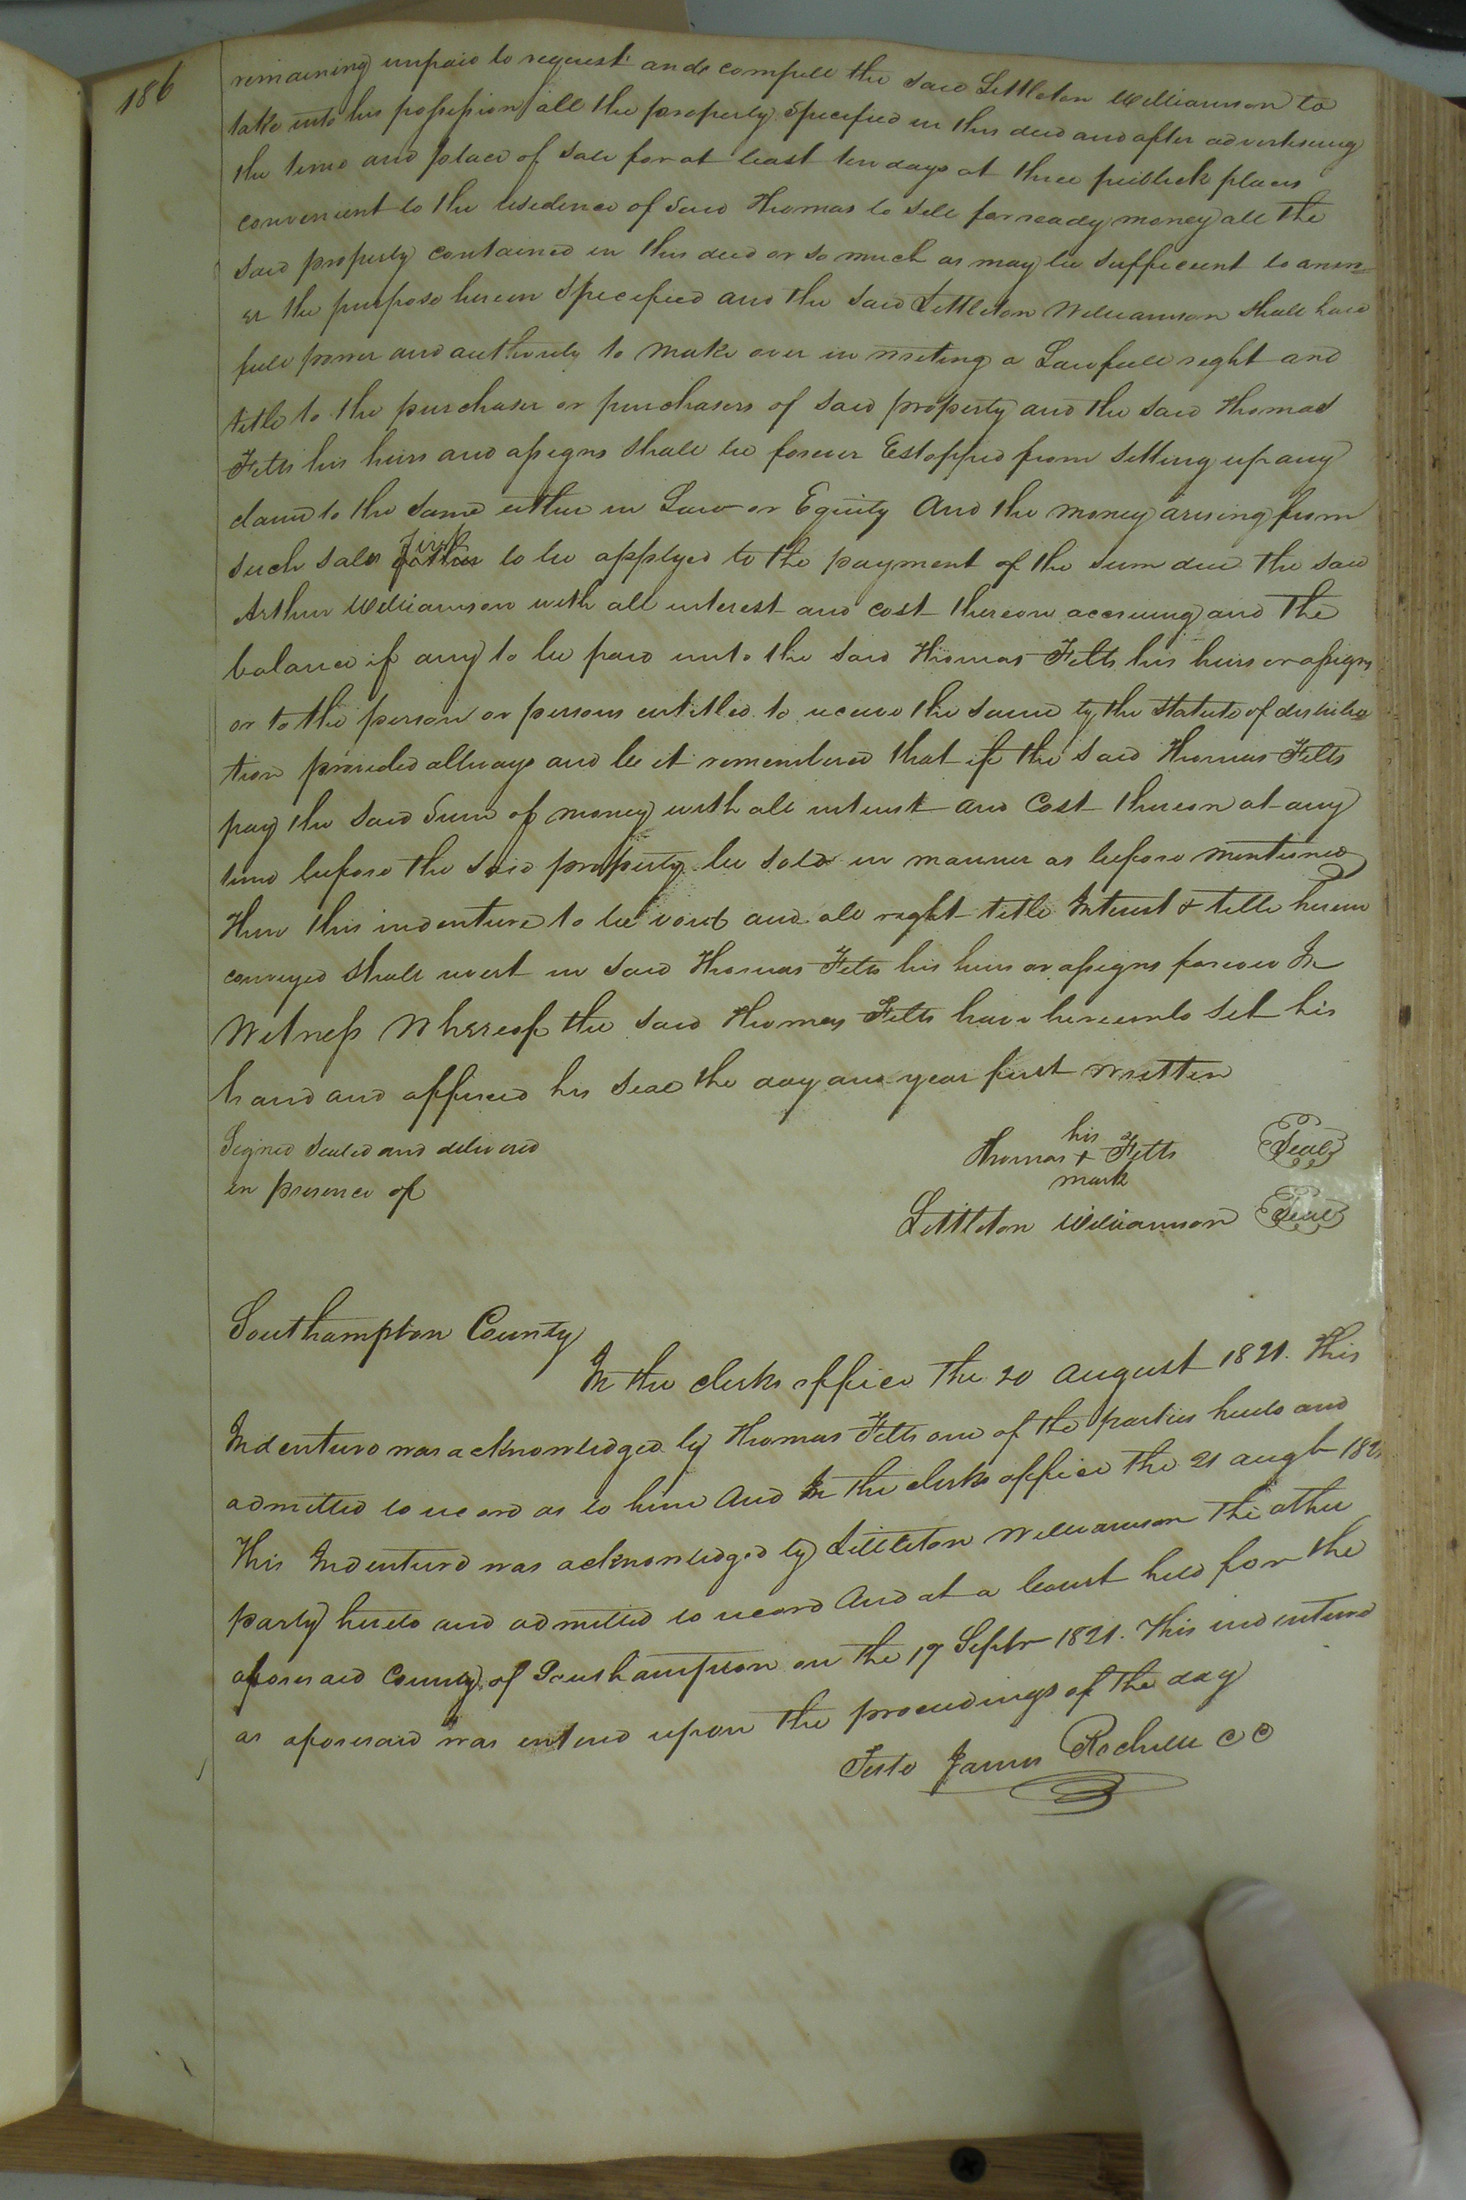 186
remaining unpaid to request and compell the said Littleton Williamson to
take into his possession all the property specified in this deed and after advertiseing
the time and place of sale for at least ten days at three publick places
convenient to the residence of said Thomas to sell for ready money all the
said property contained in this deed or so much as may be sufficient to answ-
er the purpose herein specified and the said Littleton Williamson shall have
full power and authority to make over in writing a Lawfull right and
title to the purchaser or purchasers of said property and the said Thomas
Felts his heirs and assigns shall be forever Estopped from setting up any
claim to the same either in Law or Equity And the money arising from
such sale first to be applyed to the payment of the sum due the said
Arthur Williamson with all interest and cost thereon accruing and the
balance if any to be paid unto the said Thomas Felts his heirs or assigns
or to the person or persons entitled to receive the same by the statute of distribu
tion provided allways and be it remembered that if the said Thomas Felts
pay the said Sum of money with all interest and Cost thereon at any
time before the said property be sold in manner as before mentioned
Then this indenture to be void and all right title Interest & title herein
conveyed shall revert in said Thomas Felts his heirs or assigns forever In
Witness Whereof the said Thomas Felts have hereunto set his
hand and affixed his seal the day and year first written
Signed sealed and delivered
in presence of
his
Thomas + Felts Seal
mark
Littleton Williamson Seal
Southampton County
In the clerks office the 20 August 1821. This
Indenture was acknowledged by Thomas Felts one of the parties hereto and
admitted to record as to him And In the clerks office the 21 augt 182
This Indenture was acknowledged by Littleton Williamson the other
party hereto and admitted to record And at a Court held for the
aforesaid County of Southampton on the 17 Septr 1821. This indenture
as aforesaid was entered upon the proceedings of the day
Teste James Rochelle CC